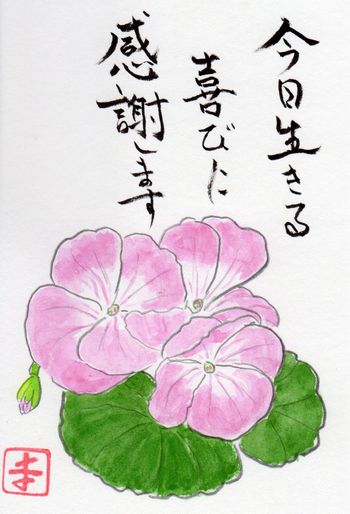 今日生きる
喜びに
感謝します